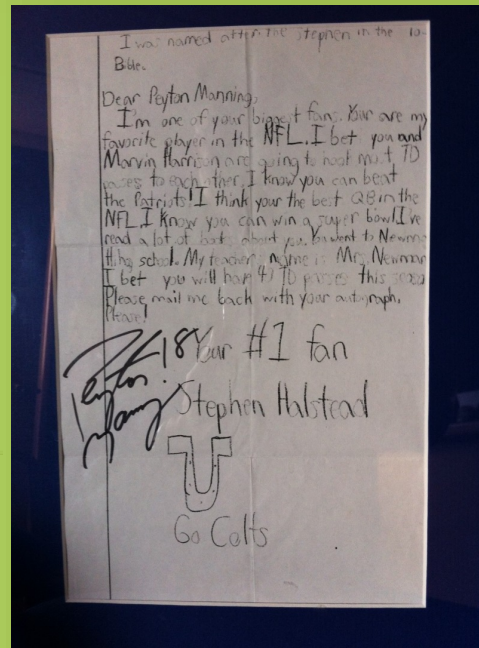 I was named after the Stephen in the
Bible.
Dear Peyton Manning,
I'm one of your biggest fans. Your are my
favorite player in the NFL. I bet you and
Marvin Harrison are going to hook most TD
passes to each other. I know you can beat
the Patriots! I think your the best QB in the
NFL. I know you can win a super bowl I've
read a lot of books about you. You went to Newman
High school. My teachers name is Mrs. Newman
I bet you will have 47 TD passes this
Please mail me back with your autograph,
Please!
Your #1 fan
Peyton Manning 18
Stephen Halstead
Go Colts